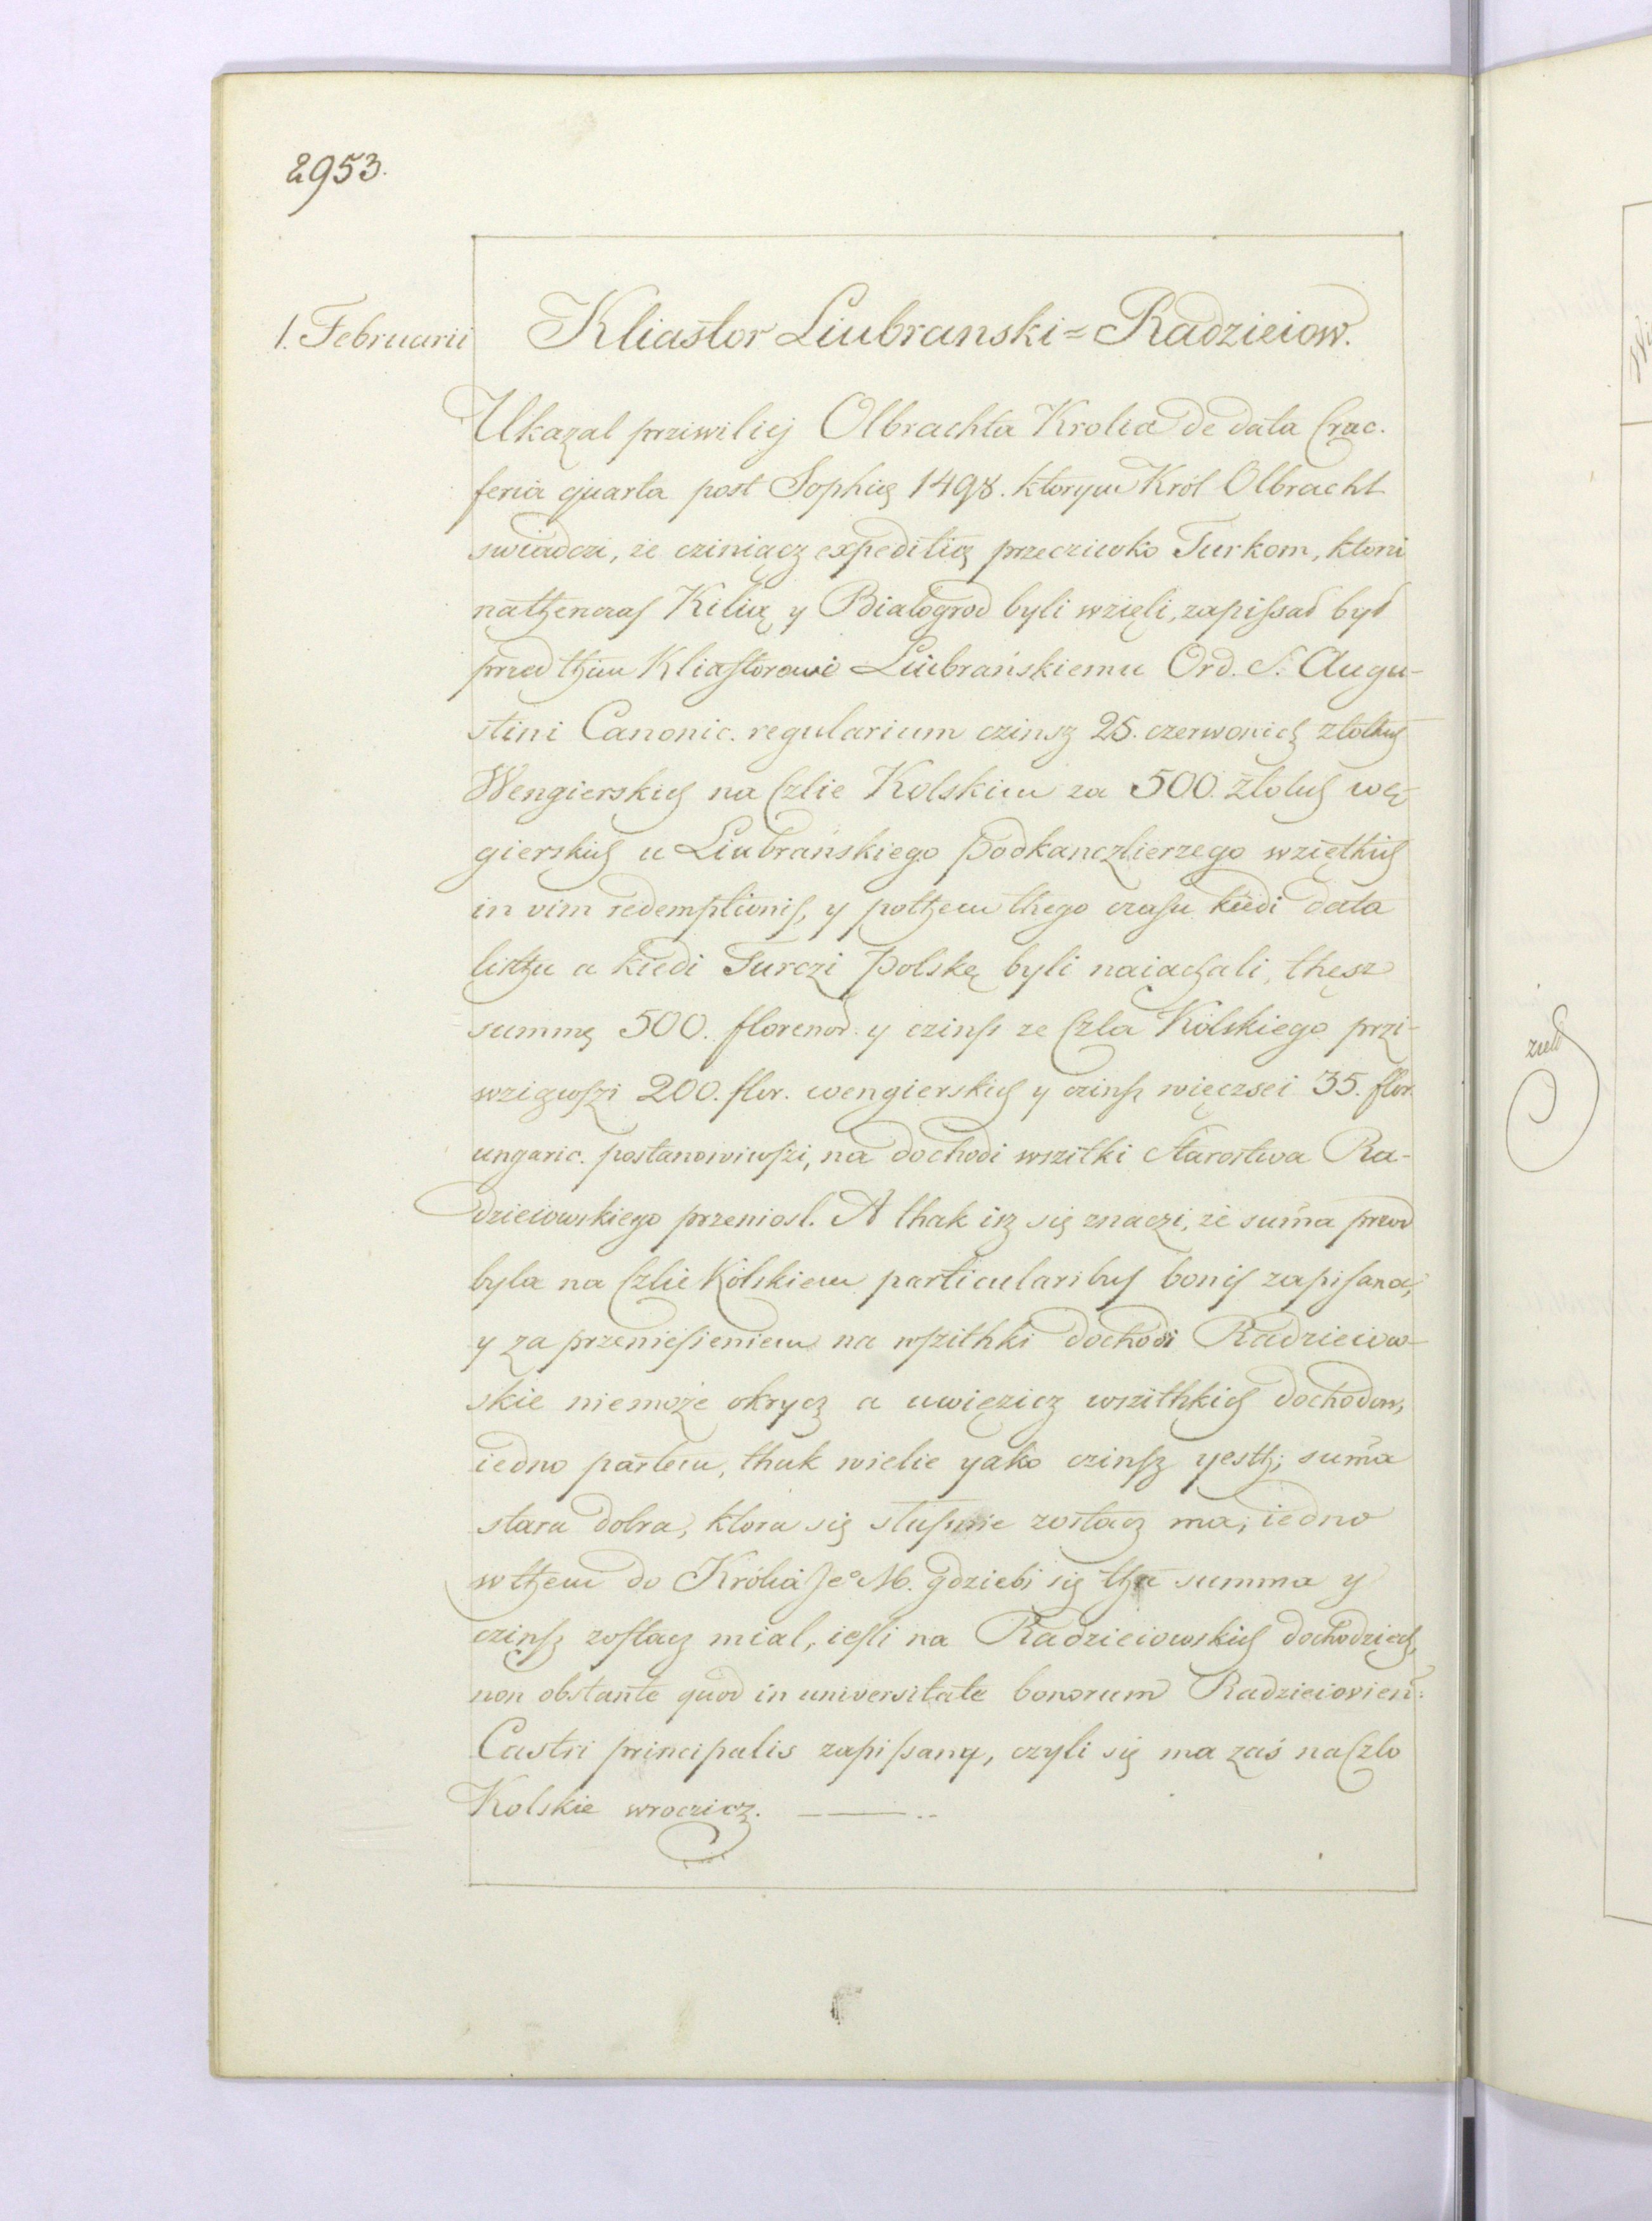 2953.
1. Februarii
Kliastor Liubranski = Radzieiow.
Ukazal prziwiliej Olbrachta Krolia de data Crac.
feria quarta post Sophię 1498. ktorym Król Olbracht
swiadczi, że cziniącz expeditią przecziwko Turkom, ktorzi
nathenczas Kilią y Białogrod byli wzięli, zapissał był
przed thim Kliastorowi Liubrańskiemu Ord. S. Augu-
stini Canonic. regularium czinsz 25. czerwonich złothich
Wengierskich na Czlie Kolskim za 500. złotich wę-
gierskich u Liubrańskiego Podkanczlierzego wzięthich
in vim redemptionis, y pothem thego czasu kiedi data
listhu a kiedi Turczi Polskę byli naiachali, thęsz
summę 500. florenor. y czinsz ze Czla Kolskiego przi-
wziąwszi 200. flor. wengierskich y czinsz więczsei 35. flor.
ungaric. postanowiwszi, na dochodi wszitki Starostwa Ra-
dzieiowskiego przeniosl. A thak isz się znaczi, że suma przod
byla na Czlie Kolskiem particularibus bonis zapisana,
y za przeniesieniem na wszithki dochodi Radzieiow-
skie niemoże okrycz a uwięzicz wszithkich dochodow,
iedno partem, thak wielie yako czinsz yesth; suma
stara dobra, ktora się slusznie zostacz ma, iedno
w them do Królia Je° M. gdziebi się tha summa y
czinsz zostacz mial, iesli na Radzieiowskich dochodziech,
non obstante quod in universitate bonorum Radzieiovien:
Castri principalis zapissany, czyli się ma zaś na Czlo
Kolskie wroczicz.